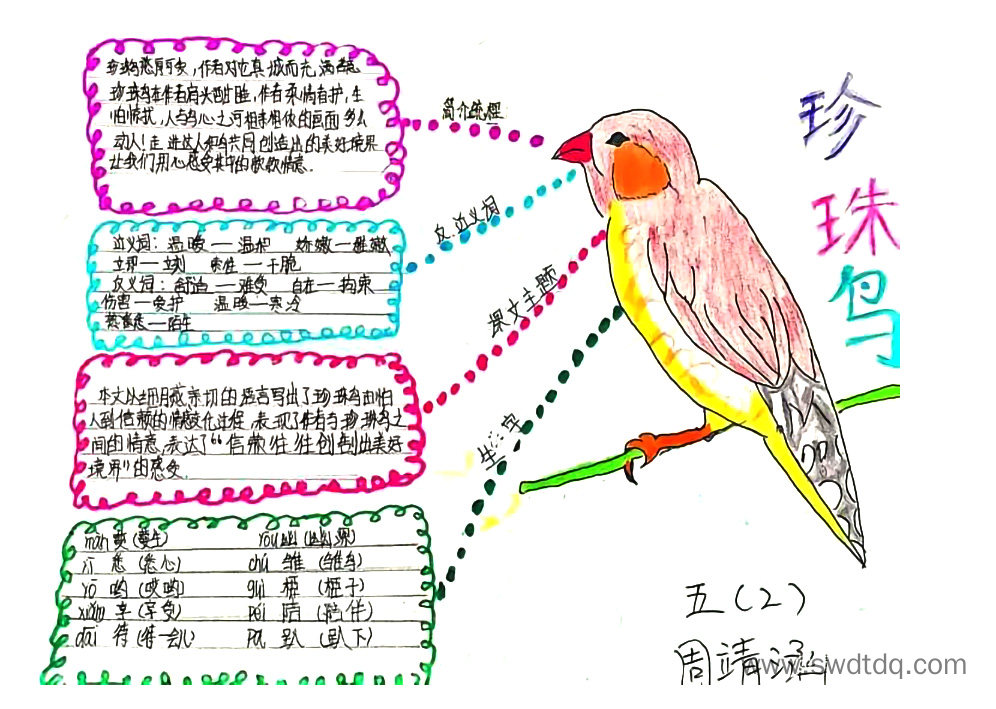 珍
珠
鸟
简介梳理
作者对它真诚而充满
珍珠鸟在作者肩头酣睡，作者柔情看护，生
怕惊扰，人与鸟心之可相亲相依的画面多么
动人！走进这人和鸟共同创造出的美好境界
让我们用心感受其中的 情意．
反.近义词
近义词：温暖—温和 娇嫩—稚嫩
立即—立刻 索性—干脆
反义词：舒适—难受 自在—拘束
伤害—爱护 温暖—寒冷
—陌生
课文主题
本文以细腻亲切的语言写出了珍珠鸟由怕
人到信赖的情感变化过程，表现了作者与珍珠鸟之
间的情意，表达了“信赖往往创制出美好
境界”的感受．
生字
màn 蔓(蔓生) yōu 幽(幽深)
xī 悉(悉心) chú 雏(雏鸟)
yō 哟(哎哟) guì 柜(柜子)
xiǎng 享(享受) péi 陪(陪伴)
dāi 待(待一会儿) pā 趴(趴下)
五(2)
周靖涵
www.swdtdq.com